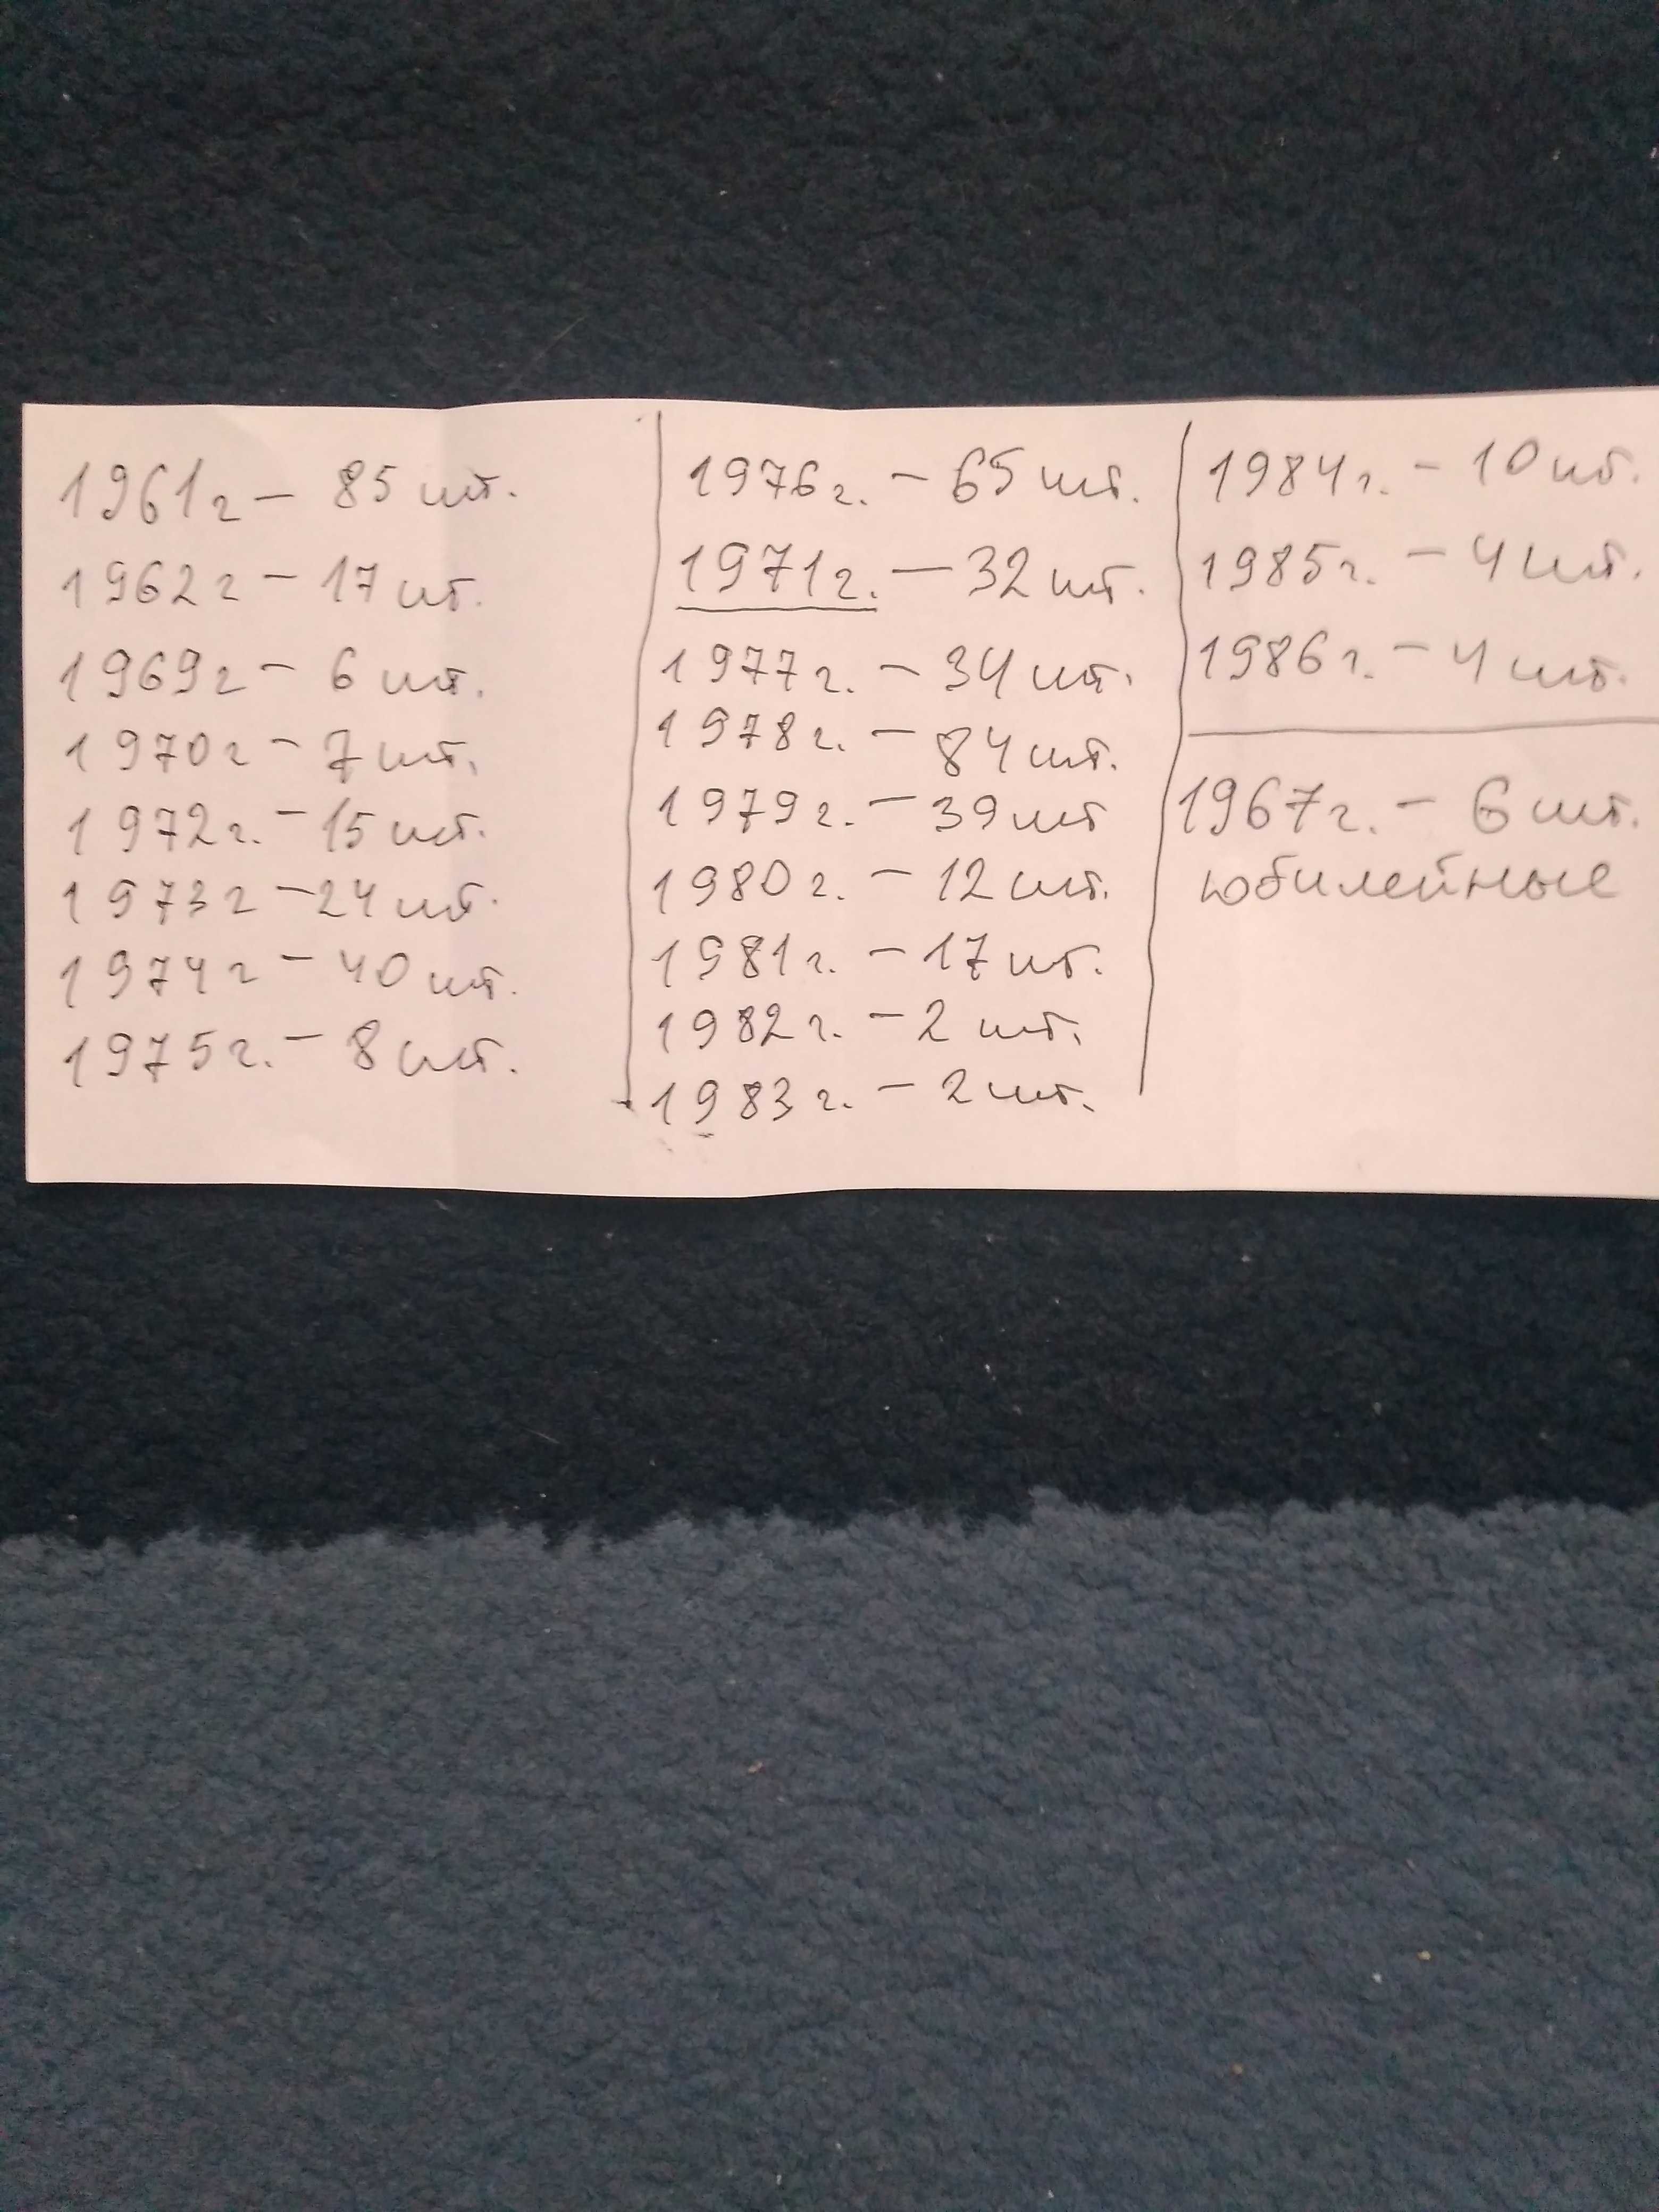 1961г – 85 шт.
1962г – 17 шт.
1969г – 6 шт.
1970г – 7 шт.
1972г. – 15 шт.
1973г – 24 шт.
1974г – 40 шт.
1975г. – 8 шт.
1976г. – 65 шт.
1971г. – 32 шт.
1977г. – 34 шт.
1978г. – 84 шт.
1979г. – 39 шт
1980г. – 12 шт.
1981г. – 17 шт.
1982г. – 2 шт.
1983г. – 2 шт.
1984г. – 10 шт.
1985г. – 4 шт.
1986г. – 4 шт.
1967г. – 6 шт.
юбилейные